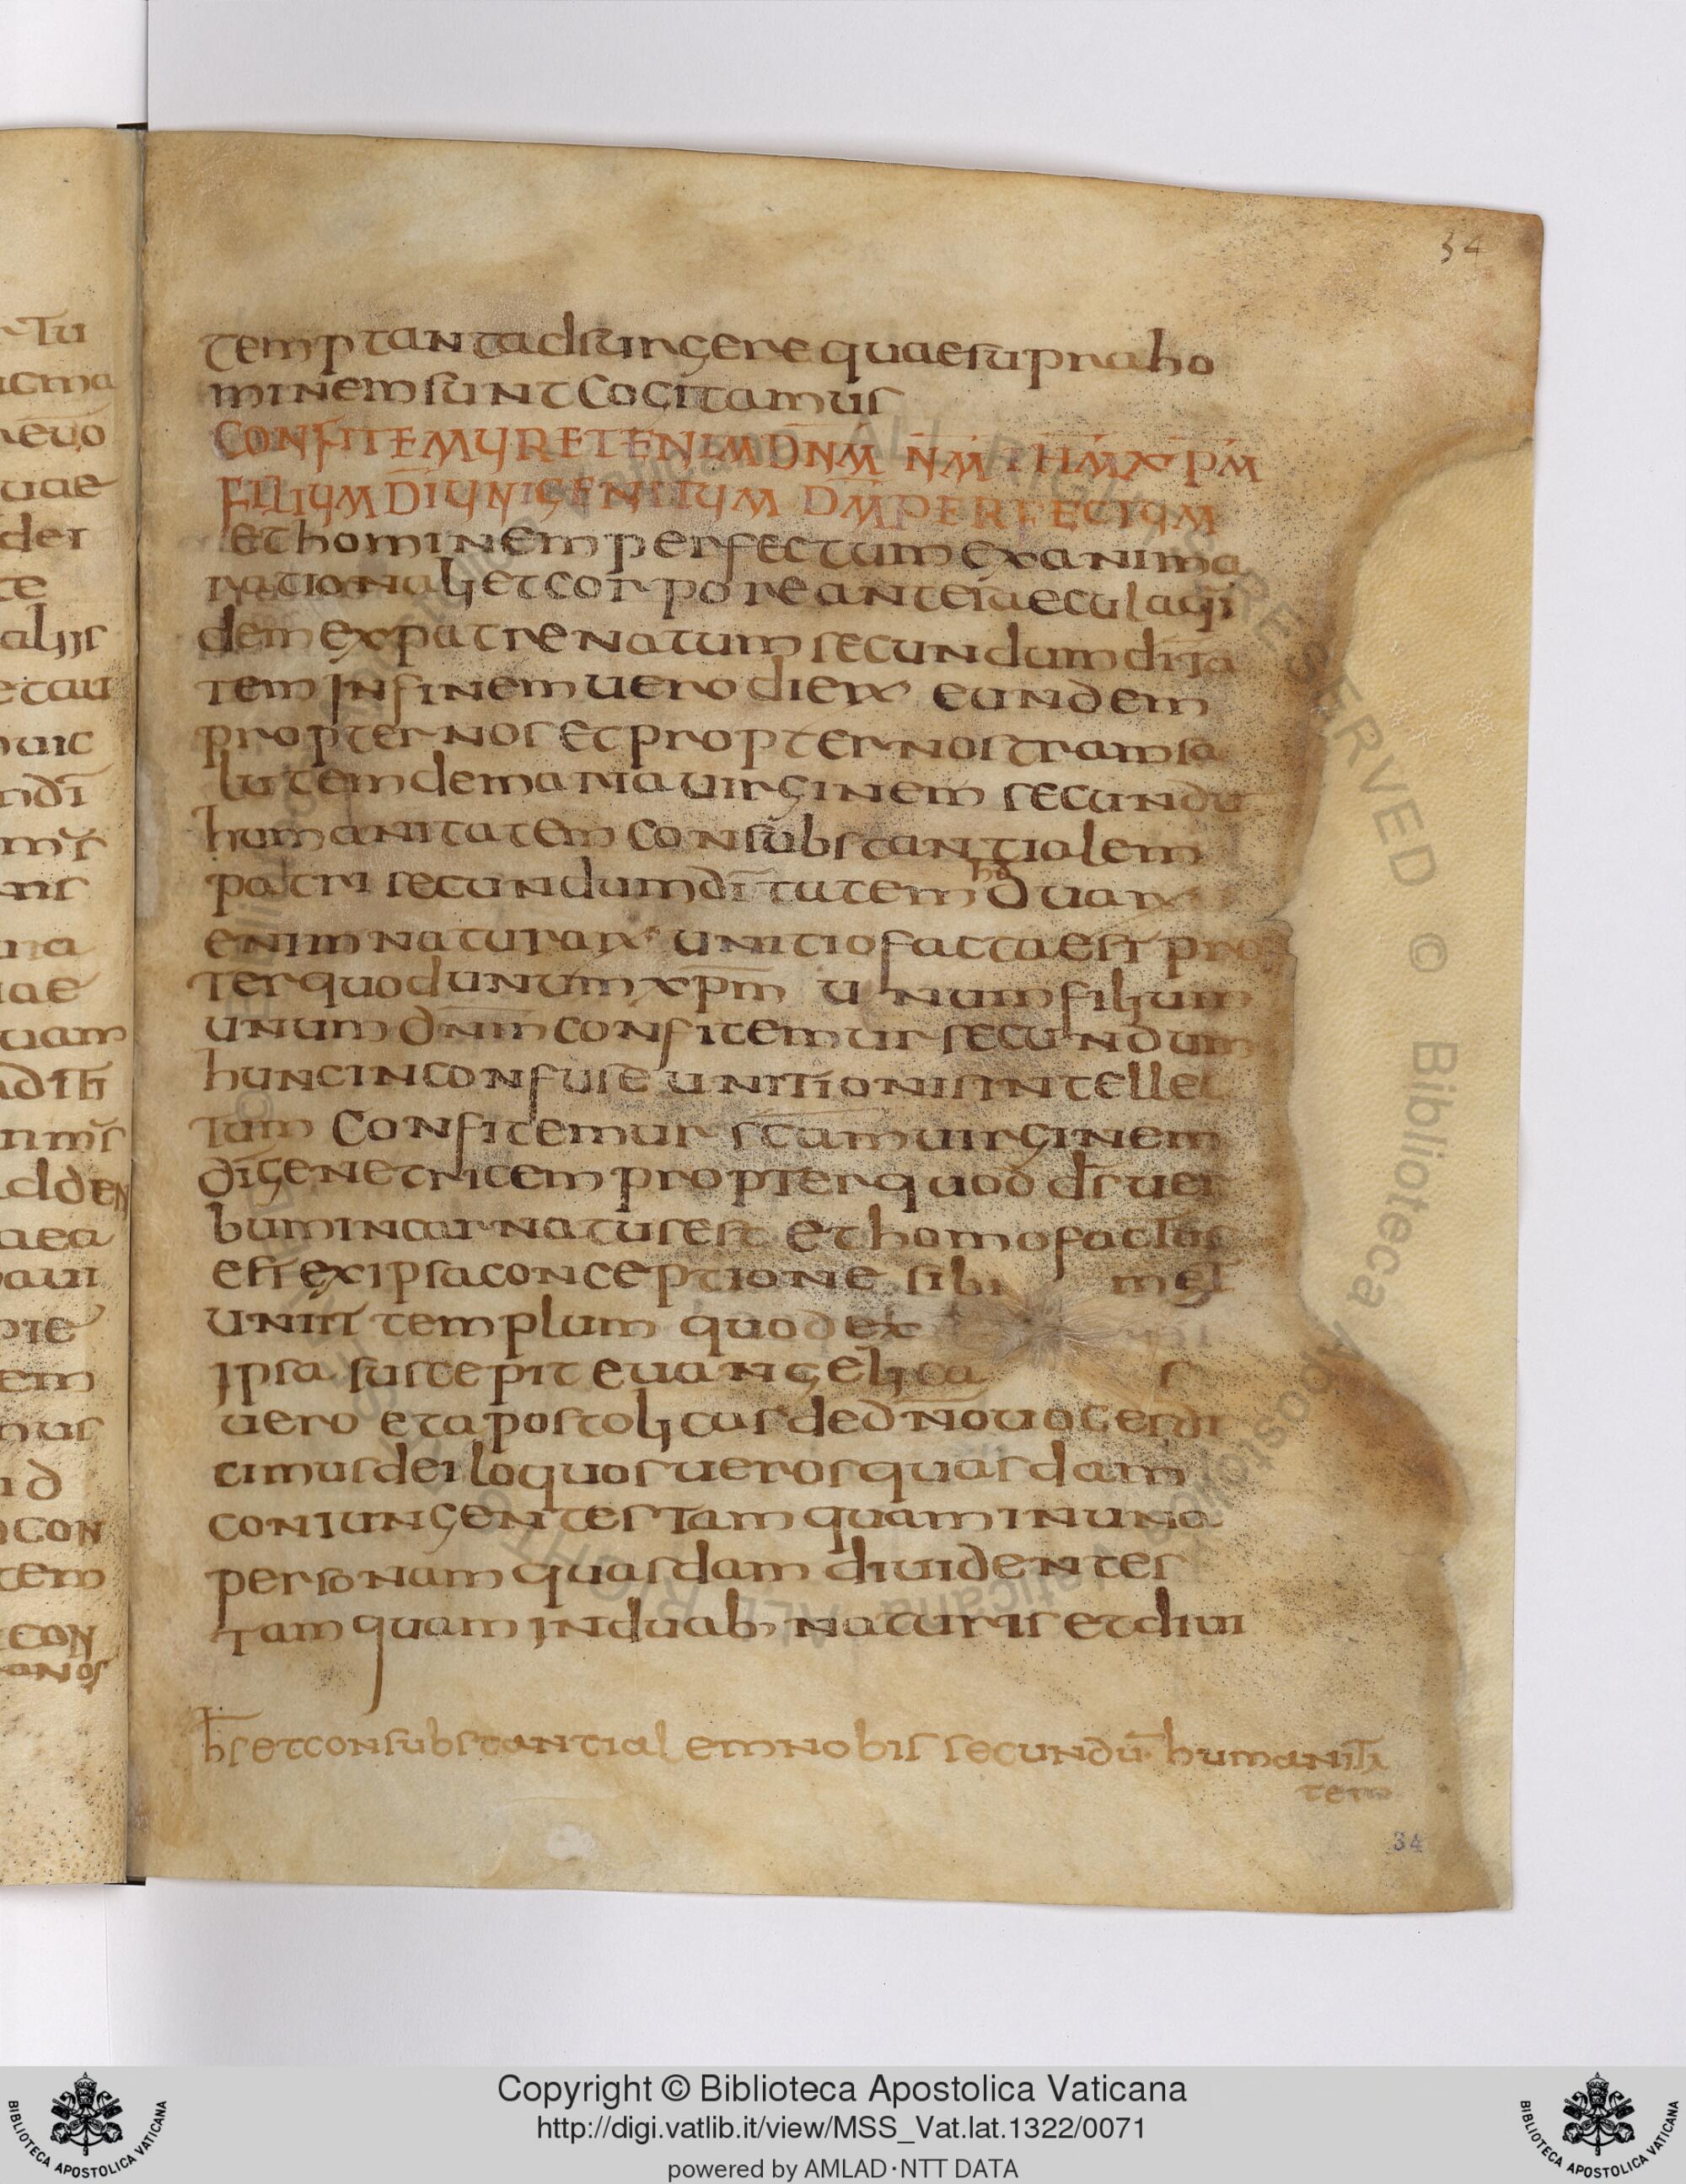 34
temptantadsurgere quaesupraho
minemsunt cogitamus
CONFITEMUR ETENIM DN̄M N̄M IHM XPM
FILIUM DĪ UNIGENITUM DM̄ PERFECTUM
et hominem perfectum ex anima
rationali et corpore ante saecula qi
dem ex patre natum secundum dīta
tem in finem uero dierx eundem
propter nos et propter nostram sa
lutem de maria uirginem secundū
humanitatem consubstantialem
patri secundum dītatem hd duarx
enim naturarx unitio facta est prop
ter quod unum xp̄m unum filium
unum dn̄m confitemur secundum
hunc inconfuse unitionis intellec
tum confitemur sc̄am uirginem
dī genetricem propter quod d̄s uer
bum incarnatus est et homo factus
est ex ipsa conceptione sibi met
uniit templum quod ex
ipsa suscepit euangelica s
uero et apostolicas de dn̄o uoces di
cimus deiloquos ueros quasdam
coniungentes tamquam in una
personam quasdam diuidentes
tamquam in duab naturis et diui
hs et consubstantialem nobis secundū humanita
tem
34
Copyright © Biblioteca Apostolica Vaticana
http://digi.vatlib.it/view/MSS_Vat.lat.1322/0071
powered by AMLAD·NTT DATA
BIBLIOTECA APOSTOLICA VATICANA
BIBLIOTECA APOSTOLICA VATICANA